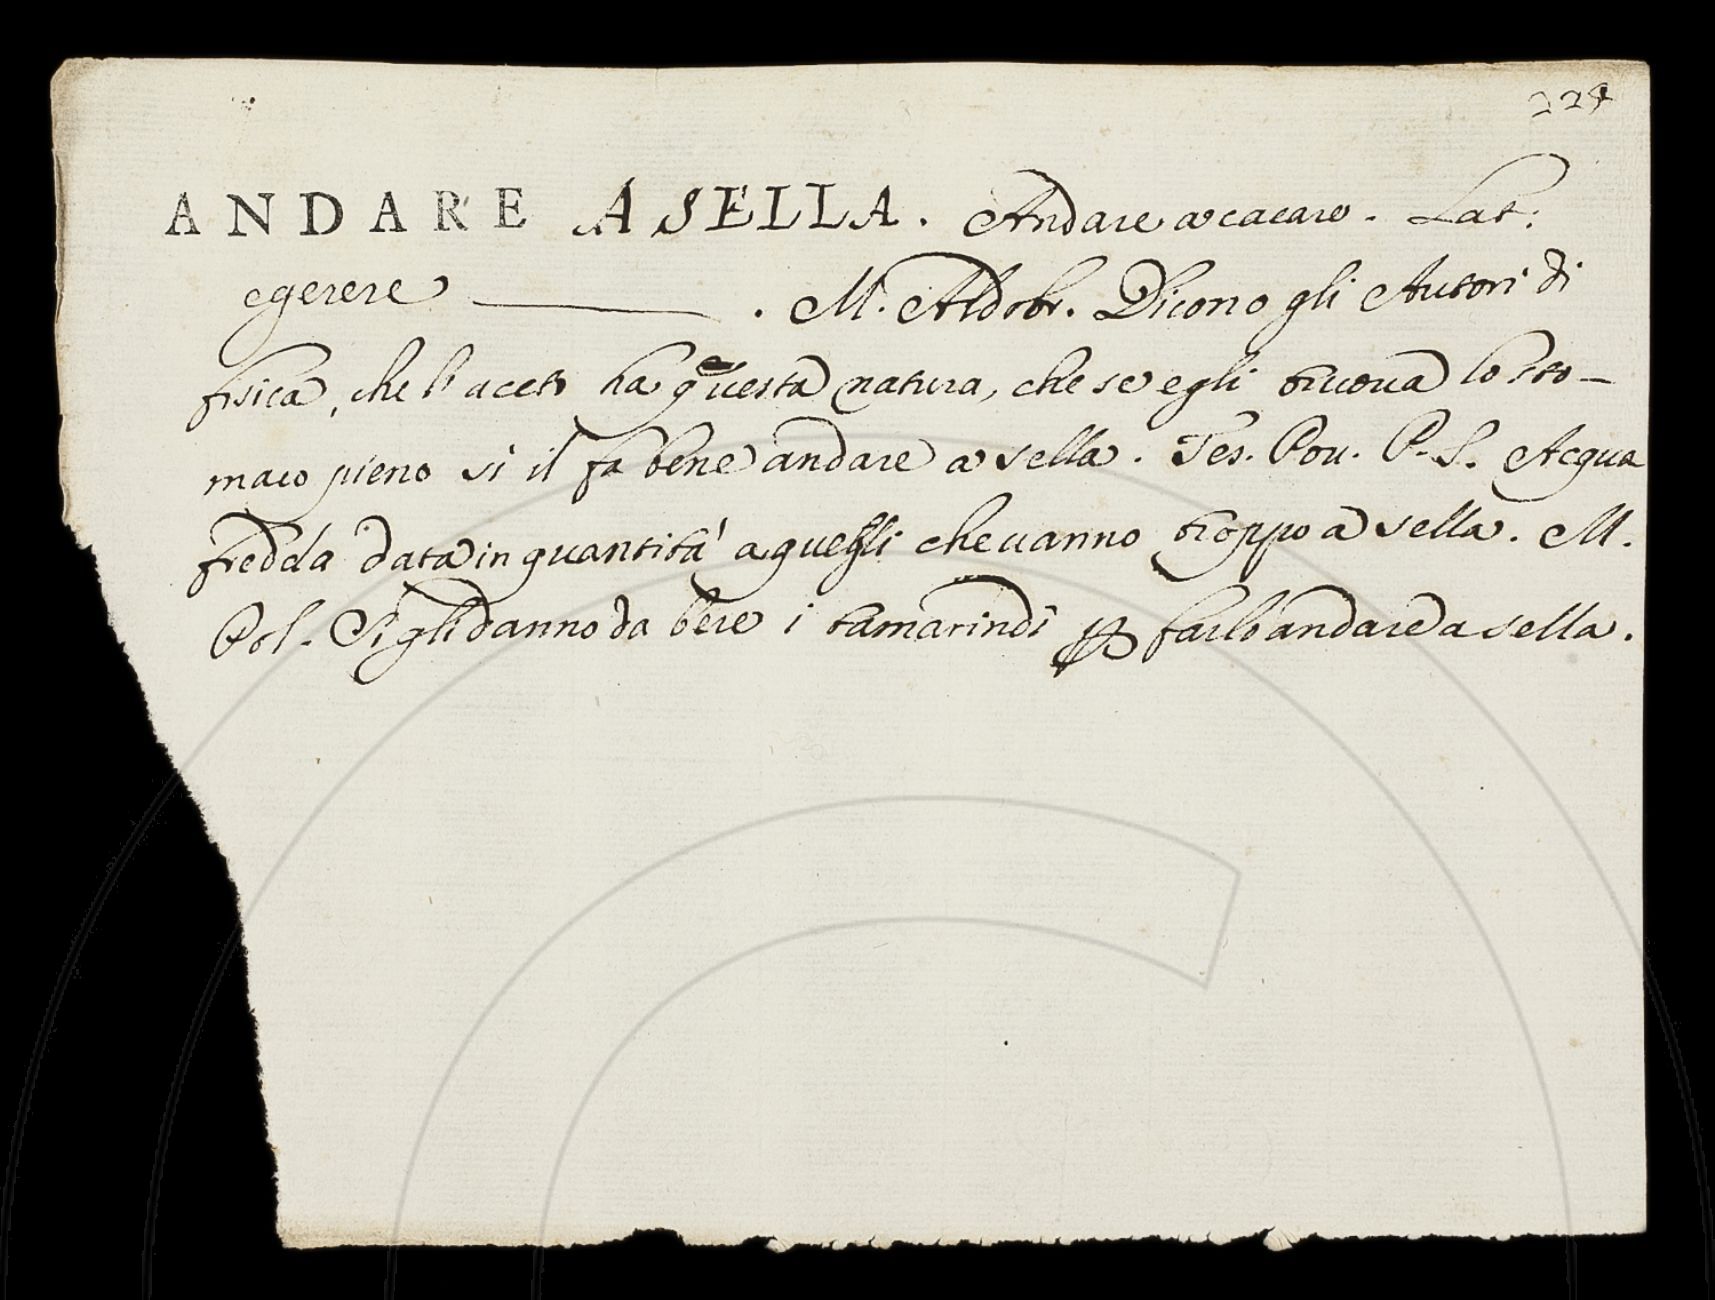 224
ANDARE A SELLA. Andare a cacare. Lat:
egerere ———. M. Aldobr. Dicono gli Autori di
fisica, che l'aceto ha questa natura, che se egli truova lo sto-
maco pieno si il fa bene andare a sella. Tes. Pov. P. S. Acqua
fredda data in quantità a quegli che uanno troppo a sella. M.
Pol. Si gli danno da bere i tamarindi ꝑ farlo andare a sella.